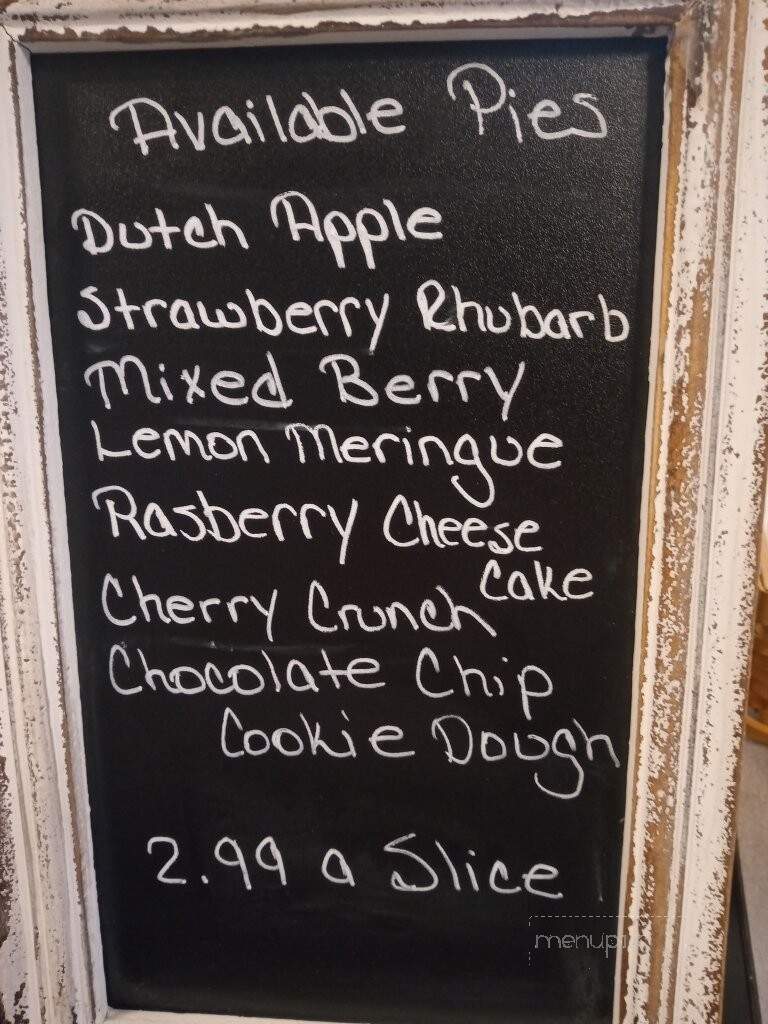 Available Pies
Dutch Apple
Strawberry Rhubarb
Mixed Berry
Lemon Meringue
Rasberry Cheese
Cake
Cherry Crunch
Chocolate Chip
Cookie Dough
2.99 a Slice